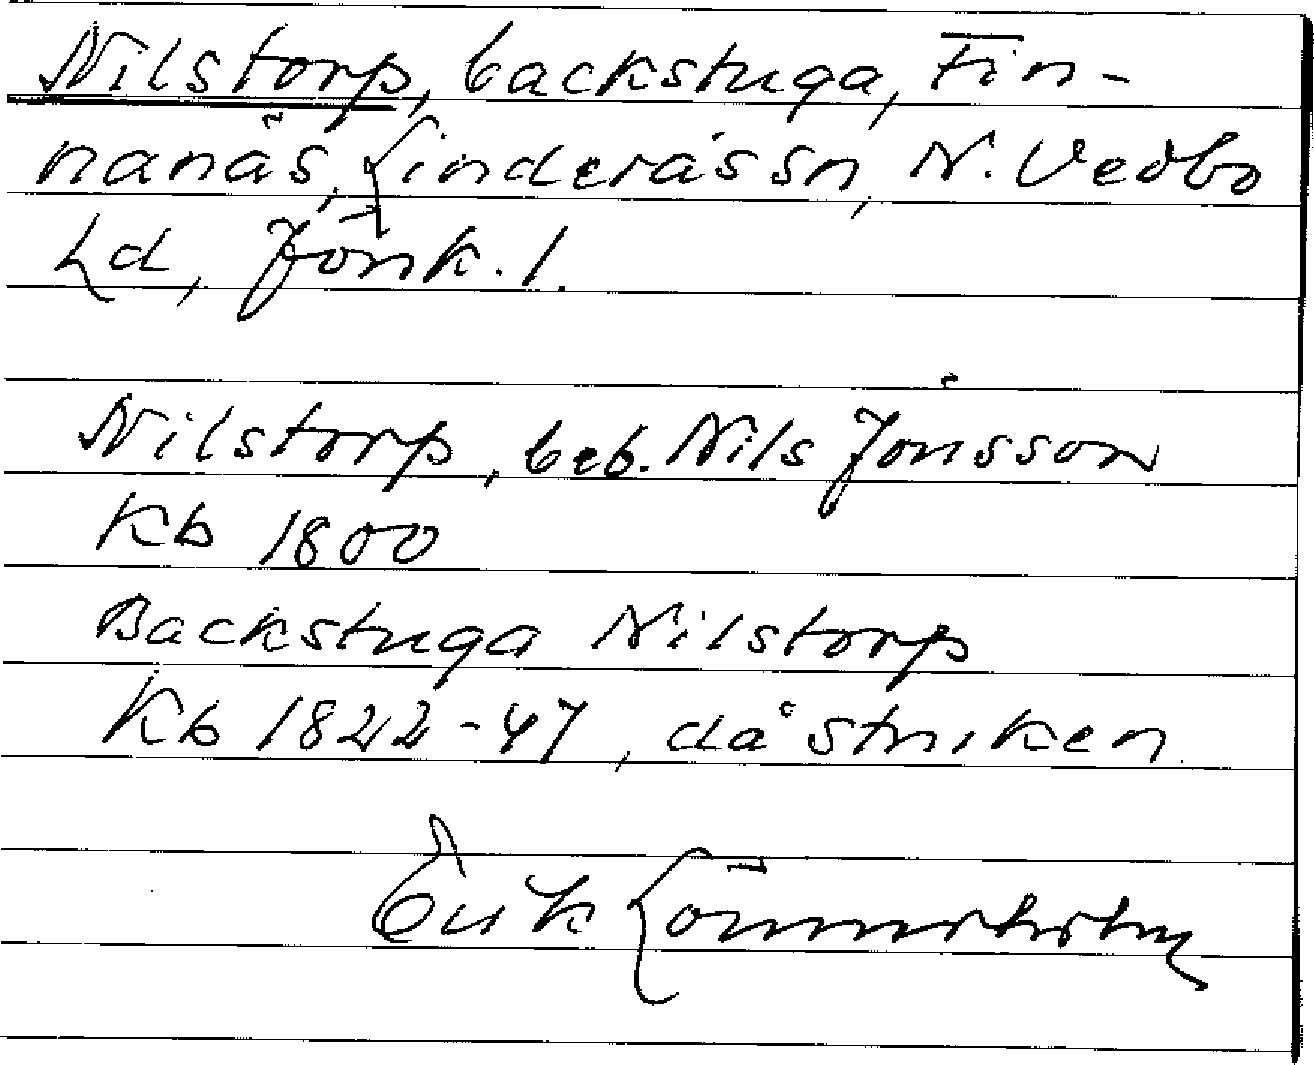 Nilstorp, backstuga, Fin-
nanäs, Linderås sn, N. Vedbo
hd, Jönk. l.
Nilstorp, beb. Nils Jonsson
Kb 1800
Backstuga Nilstorp
Kb 1822-47, då struken
Erik Lönnerholm